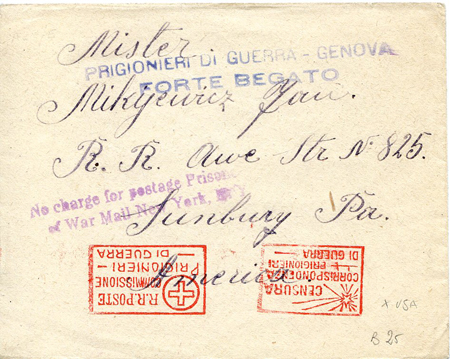 Mister
PRIGIONIERI DI GUERRA - GENOVA
FORTE BEGATO
Mikijewicz Jan.
R. R. Awe Str N: 825.
No charge for postage Prisoner
of War Mail New York, N.Y.
Sunbury Pa.
America
R.R. POSTE
COMMISSIONE
PRIGIONIERI
DI GUERRA
CENSURA
CORRISPONDENZA
PRIGIONIERI
DI GUERRA
X USA
B 25